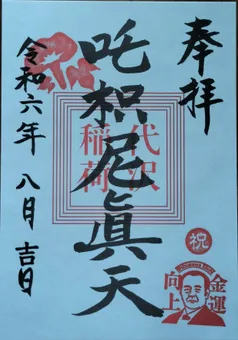 奉拝
吒枳尼眞天
代沢
稲荷
令和六年 八月 吉日
祝
金運
向上